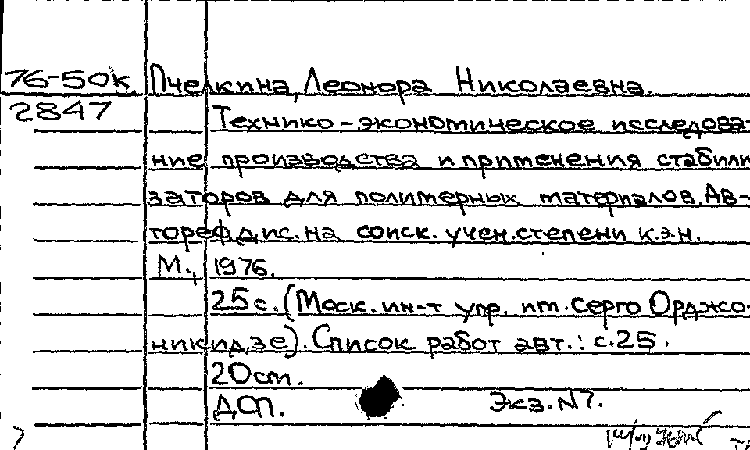 76-50к Пчелкина, Леонора Николаевна.
2847 Технико-экономическое исследова-
ние производства и применения стабили
заторов для полимерных материалов. Ав-
тореф. дис. на соиск. учен. степени к.э.н.
М., 1976.
25 с. (Моск. ин-т упр. им. Серго Орджо-
никидзе). Список работ авт.: с. 25.
20 см.
ДСП. Экз. N7.